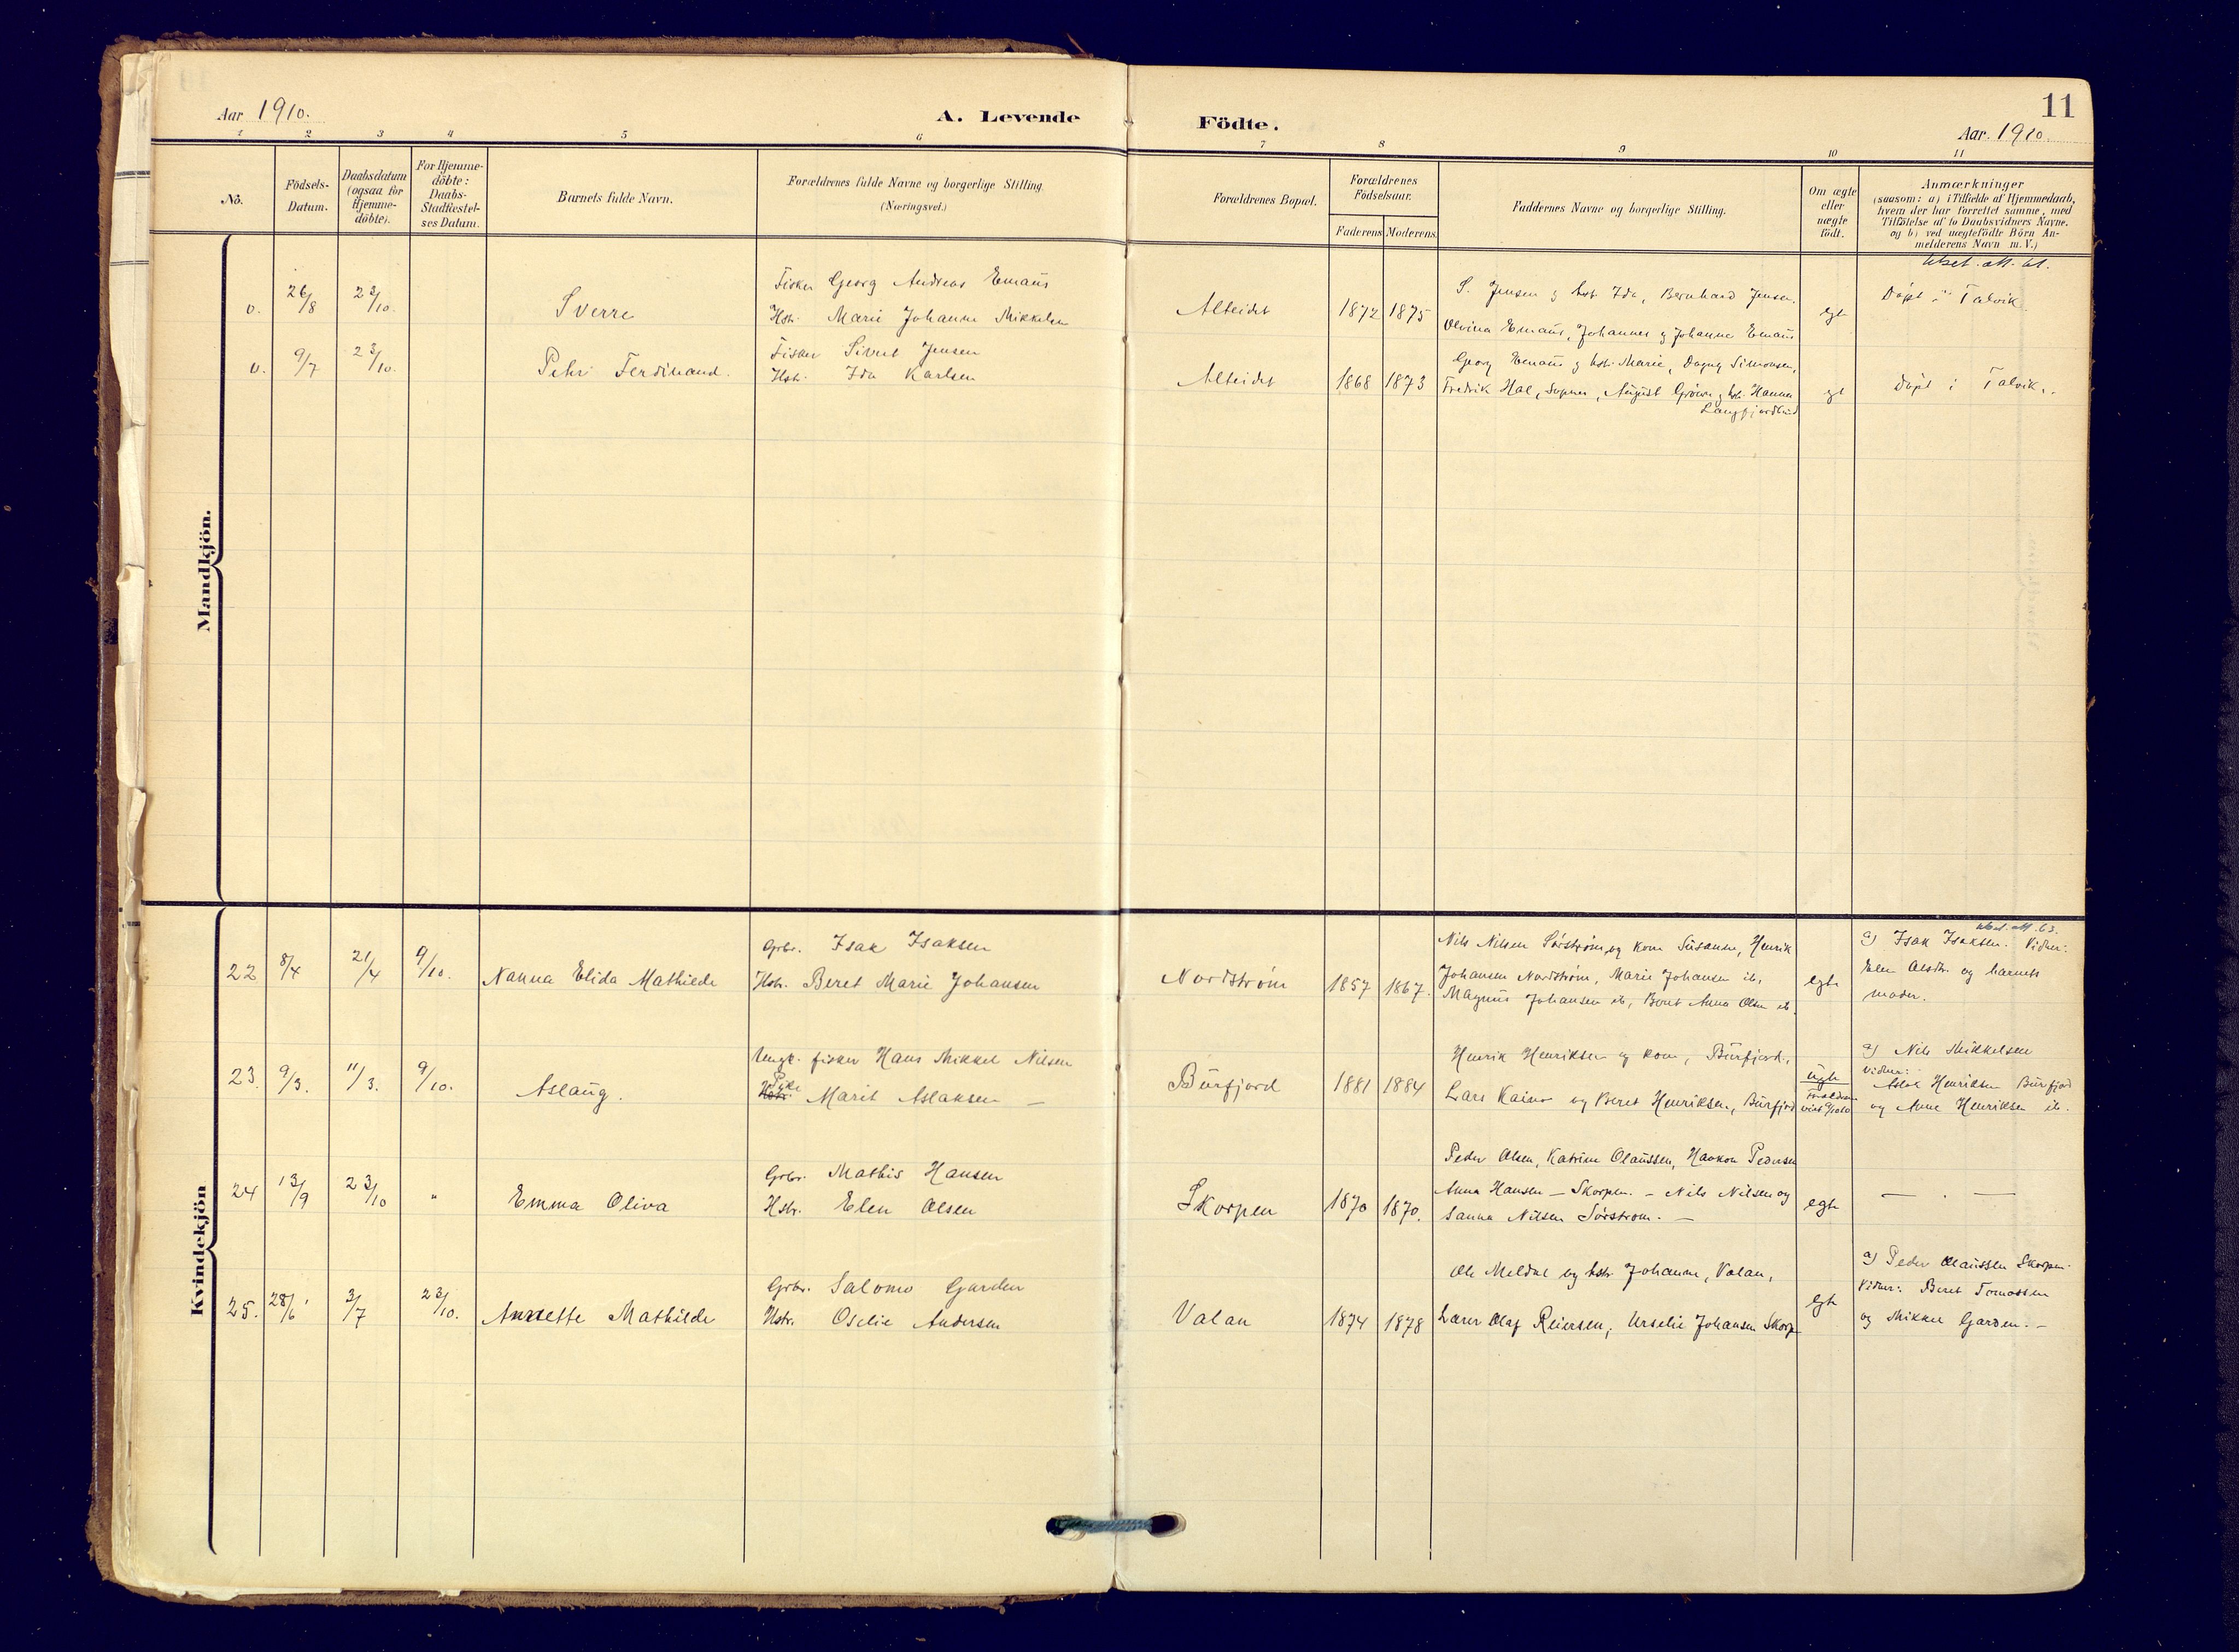 Aar 1910.
A. Levende
Födte.
11
Aar. 1910.
1 2 3 4 5 6 7 8 9 10 11
No.
Födsels-
Datum.
Daabsdatum
(ogsaa for
Hjemme-
döbte).
For Hjemme-
döbte:
Daabs-
Stadfæstel-
ses Datum.
Barnets fulde Navn.
Forældrenes fulde Navne og borgerlige Stilling.
(Næringsvei.)
Forældrenes Bopæl.
Forældrenes
Födselsaar.
Faderens Moderens
Faddernes Navne og borgerlige Stilling.
Om ægte
eller
uægte
födt.
Anmærkninger
(saasom: a) i Tilfælde af Hjemmedaab,
hvem der har forrettet samme, med
Tilföielse af to Daabsvidners Navne,
og b) ved uægtefödte Börn An-
melderens Navn m. V.)
Mandkjön.
Fisker Georg Andreas Emaus
0. 26/8 23/10. Sverre
Hstr. Marie Johanne Mikkelsen
Alteidet 1872 1875
S. Jensen og hstr. Ida, Bernhard Jensen.
Olvina Emaus, Johannes og Johanne Emaus
egt
Døpt i Talvik.
Fisker Sivert Jensen
0. 9/7 23/10. Peder Ferdinand.
Hstr. Ida Karlsen
Alteidet 1868 1873
Georg Emaus og hstr. Marie, Dagny Simonsen,
Fredrik Hal, August hstr. Hanna
Langfjordbund
egt
døpt i Talvik.
Kvindekjön
Grbr. Isak Isaksen
22 8/4 21/4 9/10. Nanna Elida Mathilde
Hstr. Beret Marie Johansen
Nordstrøm 1857 1867.
Nils Nilsen Sørstrøm og kone Susanne, Henrik
Johansen Nordstrøm, Marie Johansen ib,
Magnus Johansen ib, Beret Anna Olsen ib.
egte
a) Isak Isaksen. Vidner:
Elen Olsdtr. og barnets
moder.
Ungk. fisker Hans Mikkel Nilsen
23. 9/3. 11/3. 9/10. Aslaug.
Hstr. Pike Marit Aslaksen —
Burfjord 1881 1884
Henrik Henriksen og kone, Burfjord.,
Lars Kaino og Beret Henriksen, Burfjord
uegte
a) Nils Mikkelsen
Vidner:
Henriksen Burfjord
og Anne Henriksen ib.
Grbr. Mathis Hansen
24 13/9 23/10 " Emma Oliva
Hstr. Elen Olsen
Skorpen 1870 1870.
Peder Olsen, Katrine Olaussen, Haakon Pedersen
Anna Hansen — Skorpen. — Nils Nilsen og
Sanna Nilsen Sørstrøm. —
egte
— . —
Grbr. Salomo Garden
25. 28/6 3/7 23/10. Annette Mathilde
Hstr. Oselie Andersen
Valan 1874 1878
Ole Meldal og hstr. Johanne, Valan,
Lærer Olaf Reiersen, Urselie Johansen Skorp
egte
a) Peder Olaussen Skorpen.
Vidner: Beret Tomassen
og Mikkel Garden. —